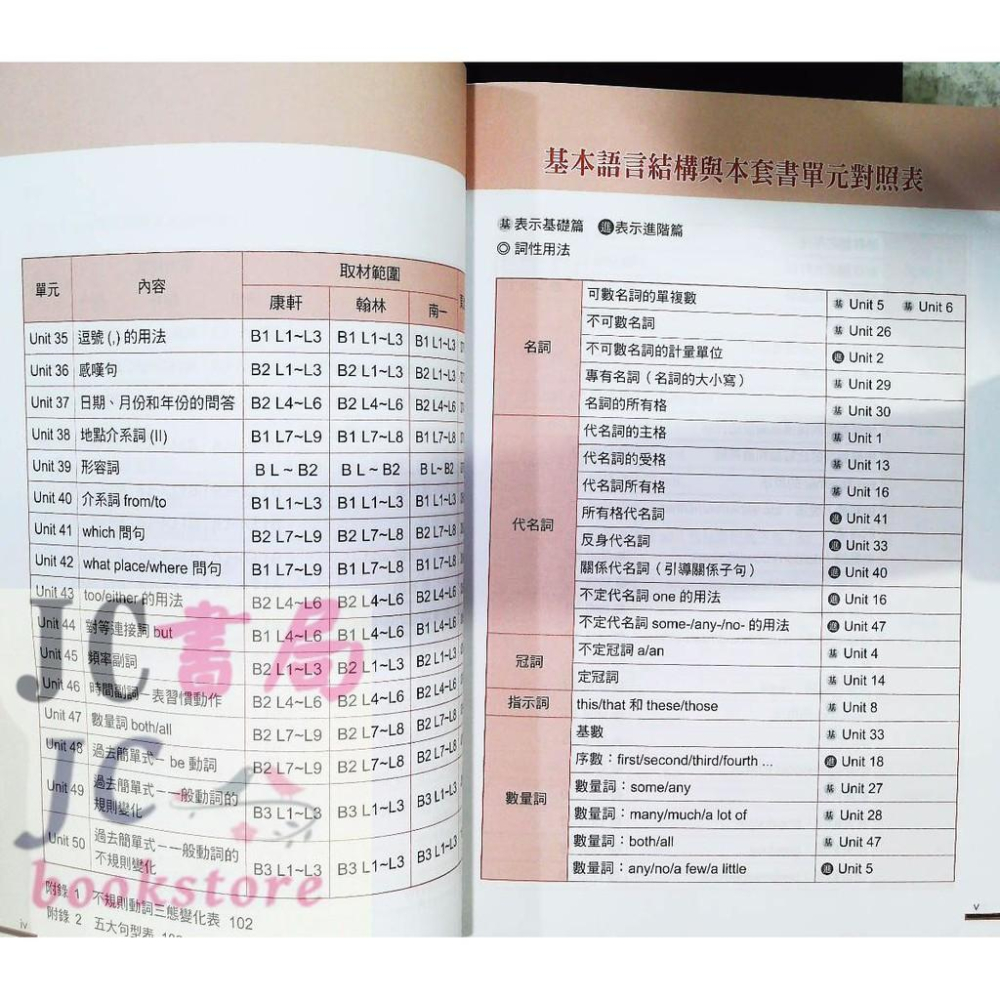 單元 內容 取材範圍
康軒 翰林 南一
Unit 35 逗號 (,) 的用法 B1 L1~L3 B1 L1~L3 B1 L1~L3
Unit 36 感嘆句 B2 L1~L3 B2 L1~L3 B2 L1~L3
Unit 37 日期、月份和年份的問答 B2 L4~L6 B2 L4~L6 B2 L4~L6
Unit 38 地點介系詞 (II) B1 L7~L9 B1 L7~L9 B1 L7~L8
Unit 39 形容詞 B L ~ B2 B L ~ B2 B L~ B2
Unit 40 介系詞 from/to B1 L1~L3 B1 L1~L3 B1 L1~L3
Unit 41 which 問句 B2 L7~L9 B2 L7~L9 B2 L7~L8
Unit 42 what place/where 問句 B1 L7~L9 B1 L7~L9 B1 L7~L8
Unit 43 too/either 的用法 B2 L4~L6 B2 L4~L6 B2 L4~L6
Unit 44 對等連接詞 but B1 L4~L6 B1 L4~L6 B1 L4~L6
Unit 45 頻率副詞 B2 L1~L3 B2 L1~L3 B2 L1~L3
Unit 46 時間副詞－表習慣動作 B2 L4~L6 B2 L4~L6 B2 L4~L6
Unit 47 數量詞 both/all B2 L7~L9 B2 L7~L9 B2 L7~L8
Unit 48 過去簡單式－be 動詞 B2 L7~L9 B2 L7~L9 B2 L7~L8
Unit 49 過去簡單式－一般動詞的
規則變化 B3 L1~L3 B3 L1~L3 B3 L1~L3
Unit 50 過去簡單式－一般動詞的
不規則變化 B3 L1~L3 B3 L1~L3 B3 L1~L3
附錄 1 不規則動詞三態變化表 102
附錄 2 五大句型表
iv
JC書局
JC
bookstore
基本語言結構與本套書單元對照表
基 表示基礎篇 進 表示進階篇
◎ 詞性用法
名詞
可數名詞的單複數 基 Unit 5 基 Unit 6
不可數名詞 基 Unit 26
不可數名詞的計量單位 進 Unit 2
專有名詞（名詞的大小寫） 基 Unit 29
名詞的所有格 基 Unit 30
代名詞
代名詞的主格 基 Unit 1
代名詞的受格 基 Unit 13
代名詞所有格 基 Unit 16
所有格代名詞 進 Unit 41
反身代名詞 進 Unit 33
關係代名詞（引導關係子句） 進 Unit 40
不定代名詞 one 的用法 進 Unit 16
不定代名詞 some-/any-/no- 的用法 進 Unit 47
冠詞
不定冠詞 a/an 基 Unit 4
定冠詞 基 Unit 14
指示詞 this/that 和 these/those 基 Unit 8
數量詞
基數 基 Unit 33
序數：first/second/third/fourth ... 進 Unit 18
數量詞：some/any 基 Unit 27
數量詞：many/much/a lot of 基 Unit 28
數量詞：both/all 基 Unit 47
數量詞：any/no/a few/a little 進 Unit 5
v